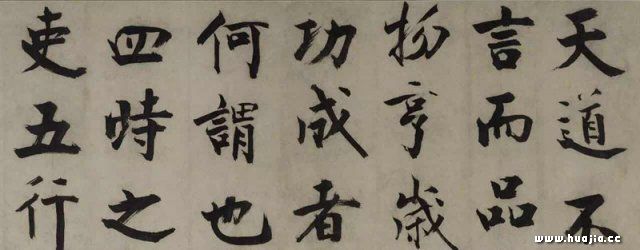 天道不
言而品
物亨歲
功成者
何謂也
四時之
吏五行
www.huajia.cc